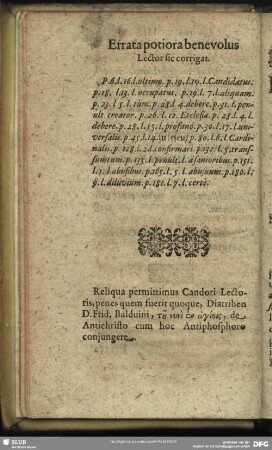 Errata potiora benevolus
Lector sic corrigat.
P. 6. l. 16. l. ultimo. p. 19. l. 19. l. Candidatus.
p. 18. l. 13. l. occupatus. p. 19. l. 7. l. aliquam.
p. 23. l. 5. l. tùm. p. 28. l. 4. debere. p. 31. l. penult.
creator. p. 26. l. 12. Ecclesia. p. 28. l. 4. l.
debere. p. 28. l. 15. l. profanò. p. 30. l. 17. l. universalis.
p. 45. l. 14. p. 80. l. 6. l. Cardinalis.
p. 128. l. 2. l. confirmari. p. 132. l. 5. transsumtum.
p. 135. l. penult. l. asamoribus. p. 151.
l. 1. l. abusibus. p. 165. l. 5. l. abusum. p. 180. l.
9. l. diluvium. p. 181. l. 7. l. certè.
Reliqua permittimus Candori Lectoris,
penes quem fuerit quoque, Diatriben
D. Frid. Balduini, τȣ͂ νυνὶ ἐν ἁγίοις, de
Antichristo cum hoc Antiphosphoro
conjungere.
SLUB